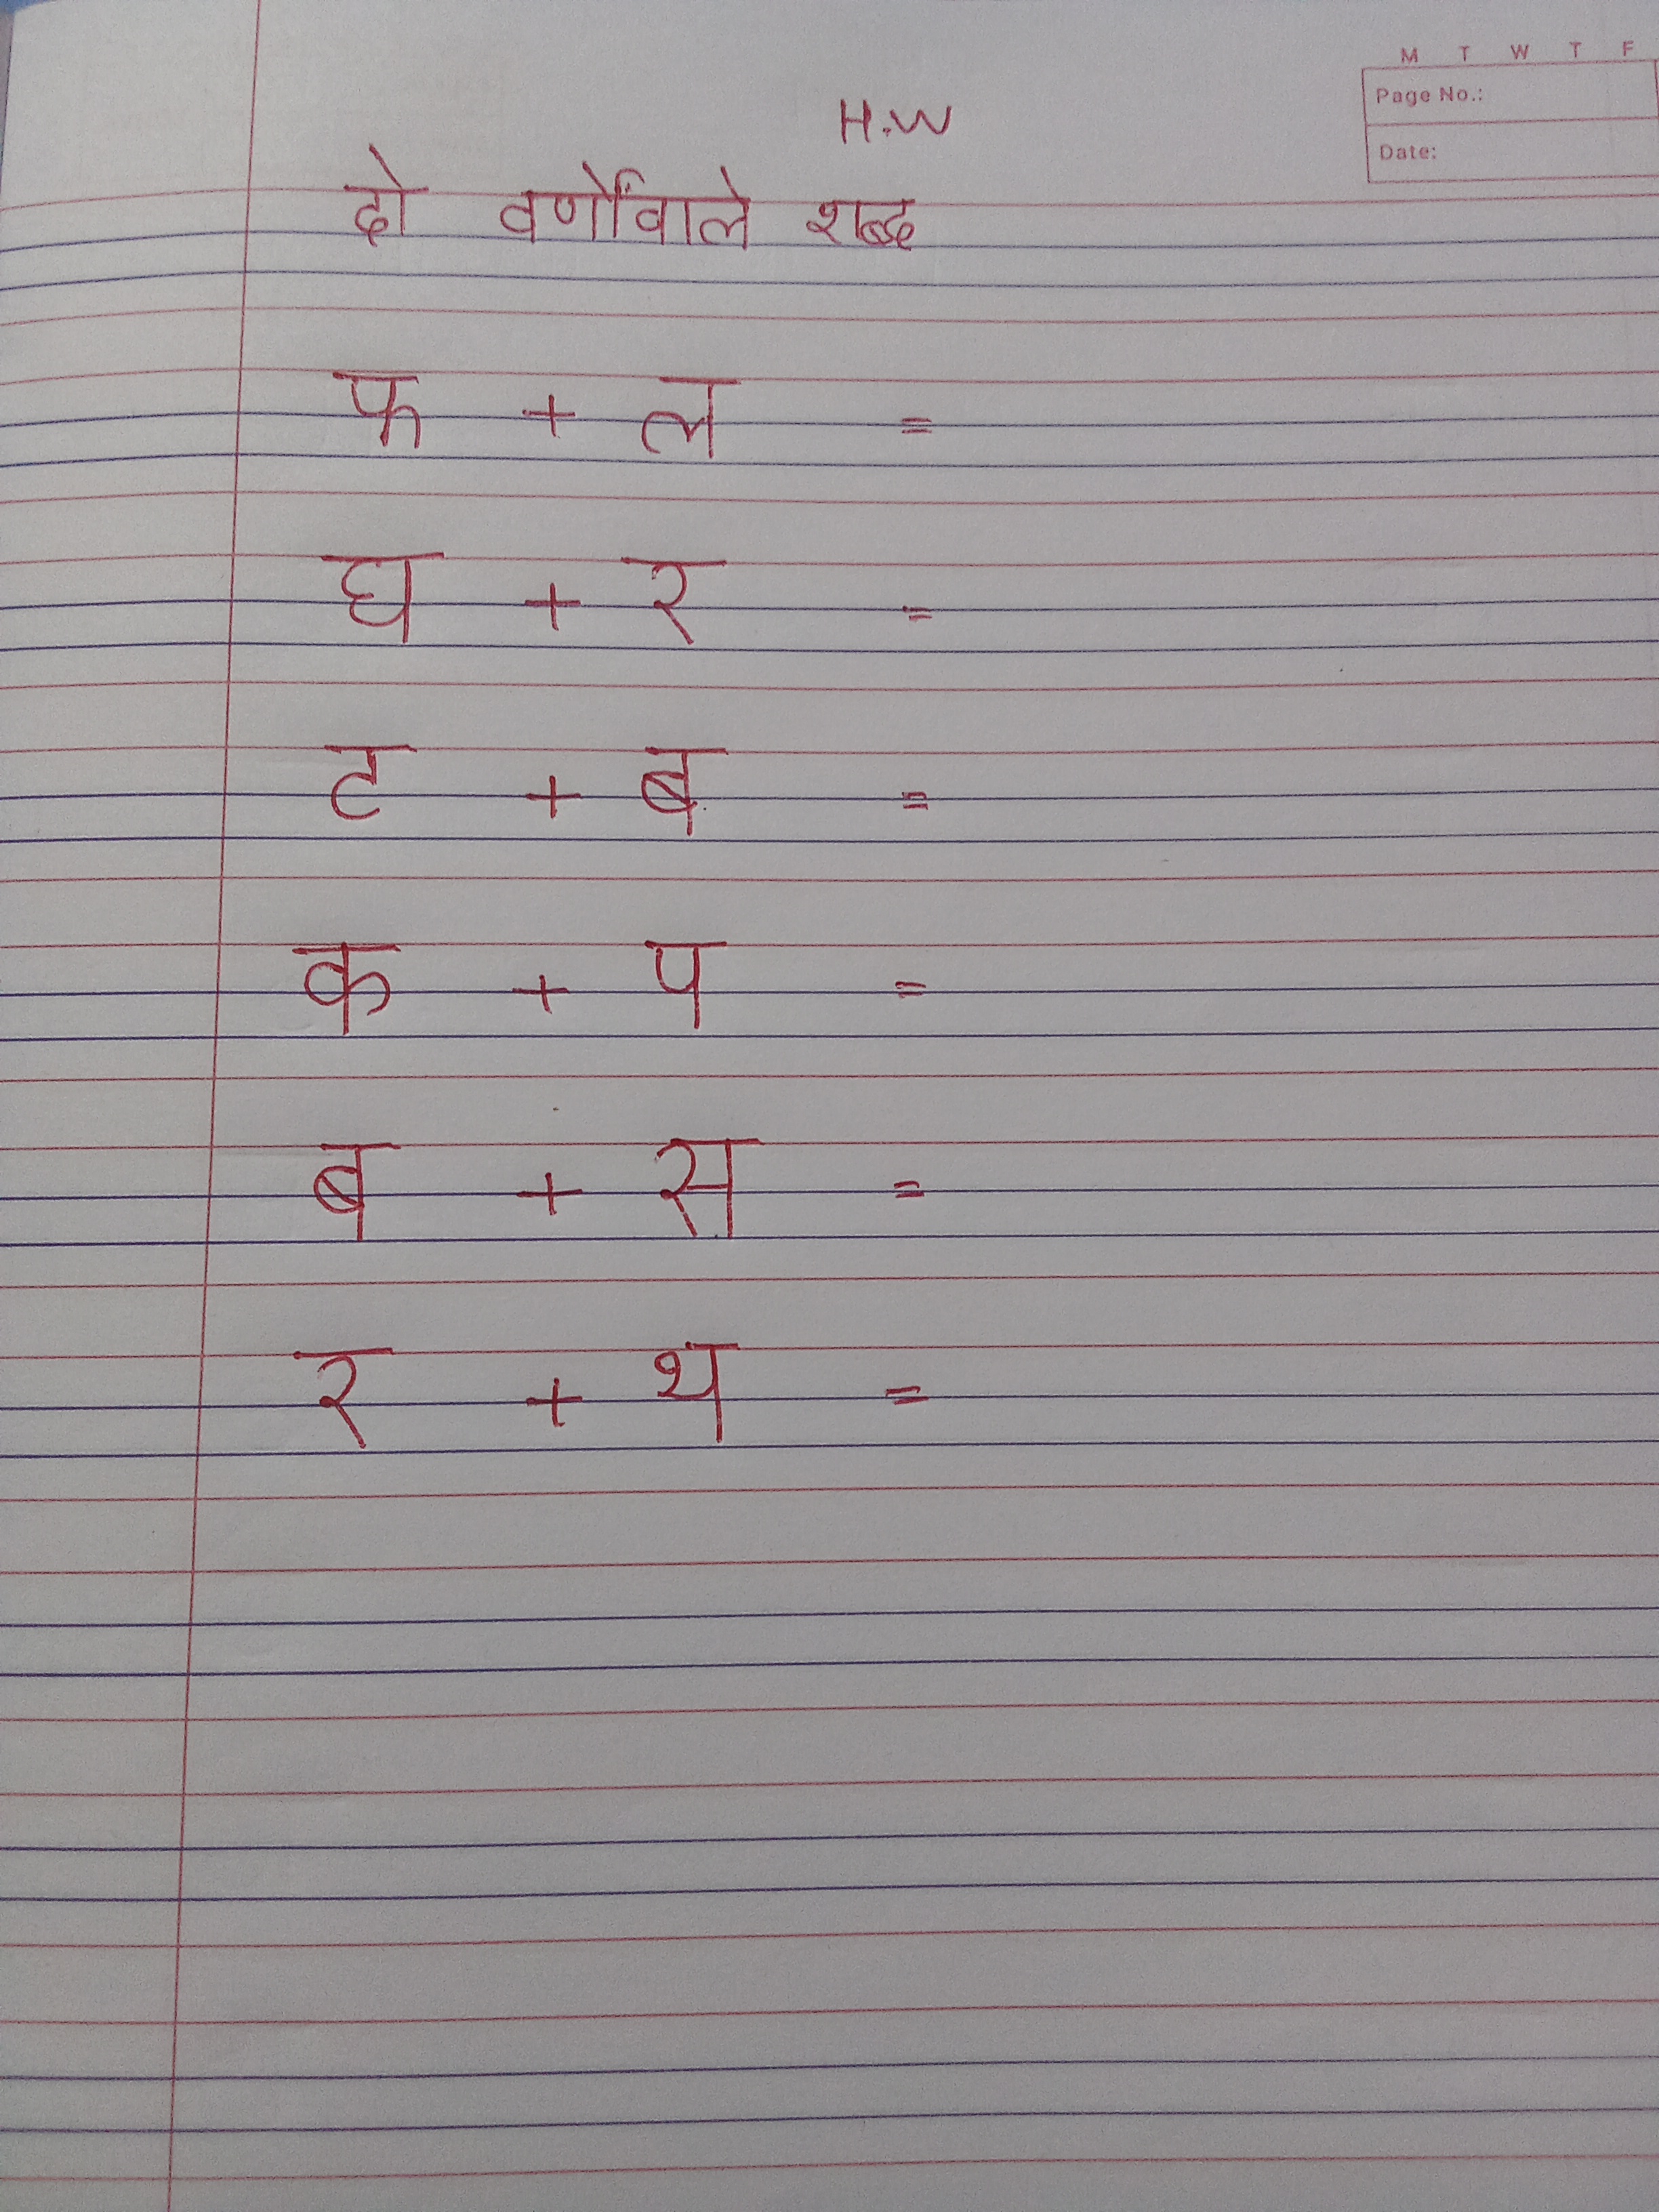 M T W T F
Page No.:
Date:
H.W
दो वर्णोंवाले शब्द
फ + ल =
घ + र =
ट + ब =
क + प =
ब + स =
र + थ =